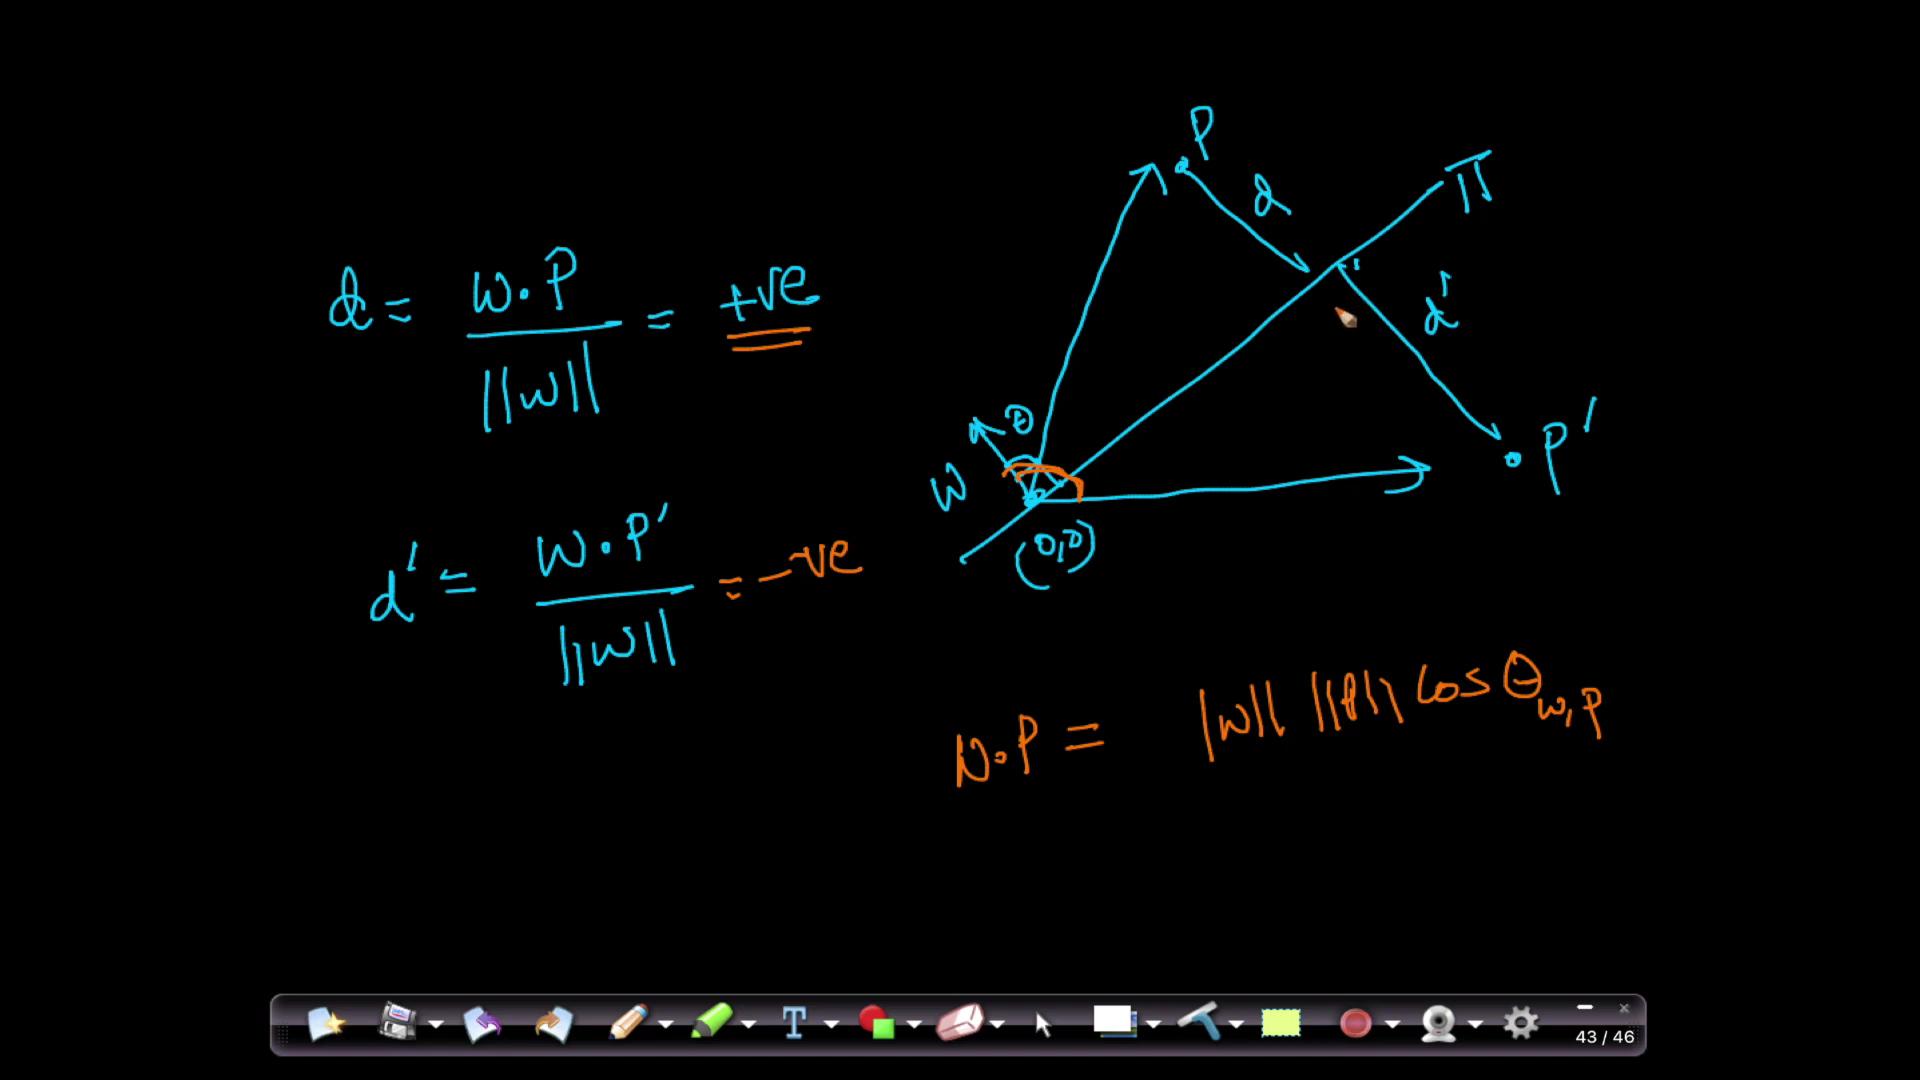 d = w . P / ||w|| = +ve
d' = w . P' / ||w|| = -ve
P
d
π
d'
P'
θ
w
(0,0)
w . P = ||w|| ||P|| cos θ w,P
T
43 / 46